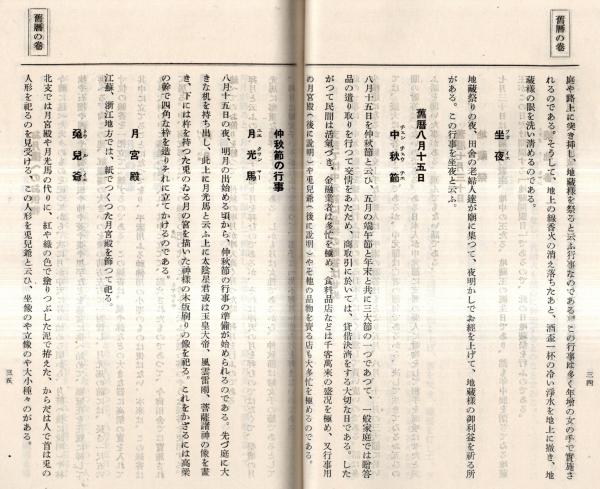 舊曆の卷
庭や路上に突き挿し、地藏樣を祭ると云ふ行事なのである。この行事は多く年增の女の手で實施さ
れるのである。そうして、地上の線香火の消え落ちたあと、酒盃一杯の冷い淨水を地上に撒き、地
藏樣の眼を洗い淸めるのである。
坐夜
地藏祭りの夜、田舍の老婦人達が廟に集つて、夜明かしでお經を上げて、地藏樣の御利益を祈る所
がある。この行事を坐夜と云ふ。
舊曆八月十五日
中秋節
八月十五日を仲秋節と云ひ、五月の端午節と年末と共に三大節の一つであつて、一般家庭では贈答
品の遣り取りを行つて交情をあたため、商取引に於いては、貸借決濟をする大切な日である。した
がつて民間は活氣づき、金融業者は多忙を極め、食料品店などは千客萬來の盛況を極め、又行事用
の月宮殿(後に說明)や兎兒爺(後に說明)やその他の品物を賣る店も大多忙を極めるのである。
三四
舊曆の卷
仲秋節の行事
月光馬
八月十五日の夜、明月の出始める頃から、仲秋節の行事の準備が始められるのである。先づ庭に大
きな机を持ち出し、此上に月光馬と云ふ上に太陰星君或は玉皇大帝、風雲雷雨、菩薩諸神の像を畫
き、下には杵を持つた兎のゐる月の宮を描いた神樣の木版刷りの像を祀る。これをかざるには高粱
の幹で四角な枠を造りそれに立てかけるのである。
月宮殿
江蘇、浙江地方では、紙でつくつた月宮殿を飾つて祀る。
兔兒爺
北支では月宮殿や月光馬の代りに、紅や綠の色で塗りつぶした泥で拵えた、からだは人で首は兎の
人形を祀るのを見受ける。この人形を兎兒爺と云ひ、坐像のや立像のや大小種々のがある。
三五